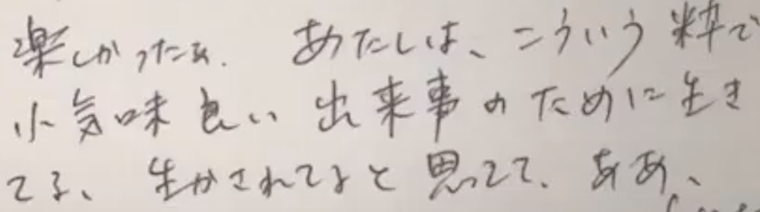 楽しかったね. あたしは、こういう粋で
小気味良い出来事のために生き
てる、生かされてると思ってて、ああ、